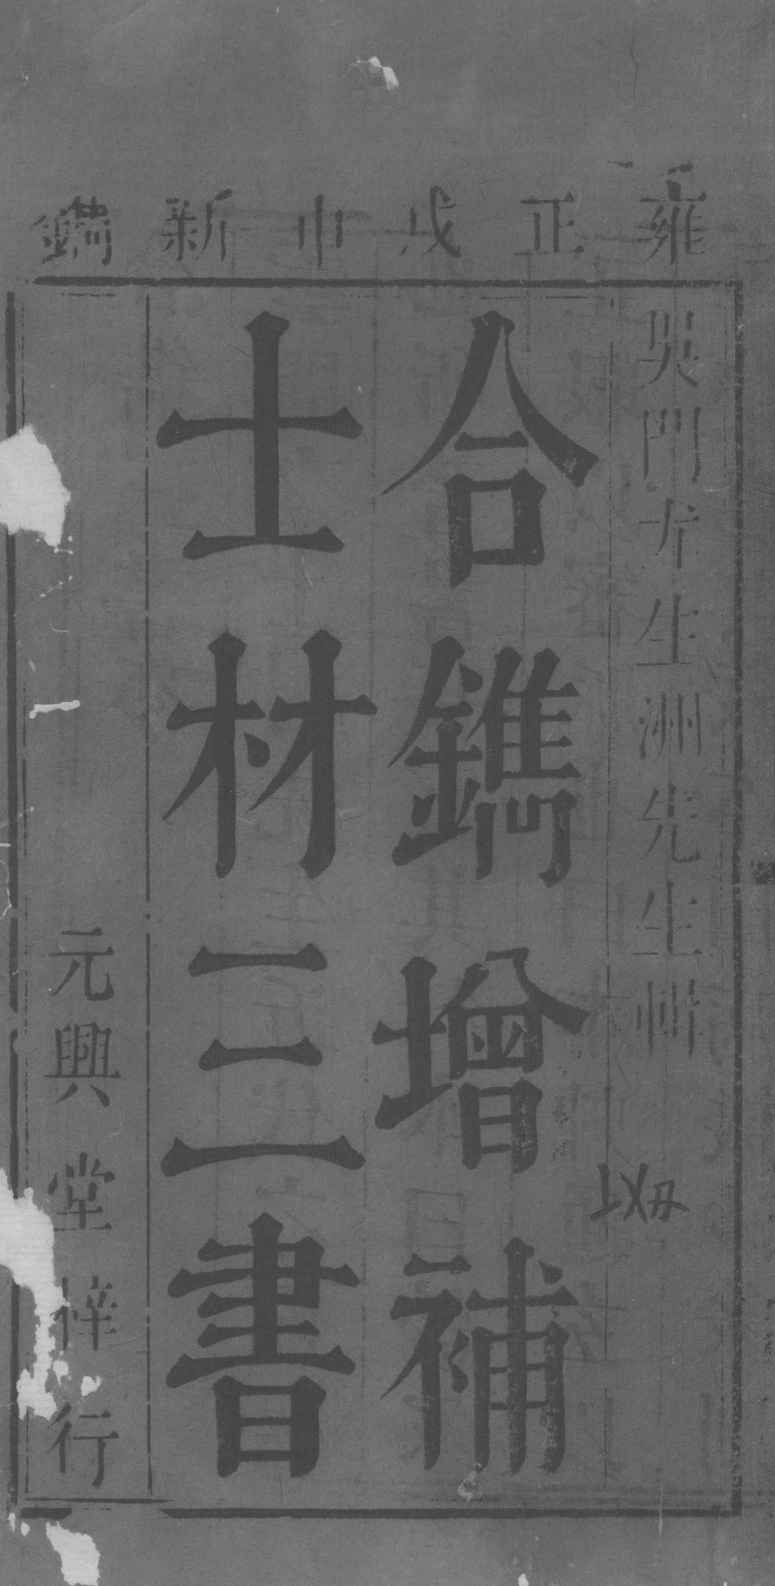 雍正戊申新鐫
吳門尤生洲先生輯
合鐫增補
士材三書
元興堂梓行